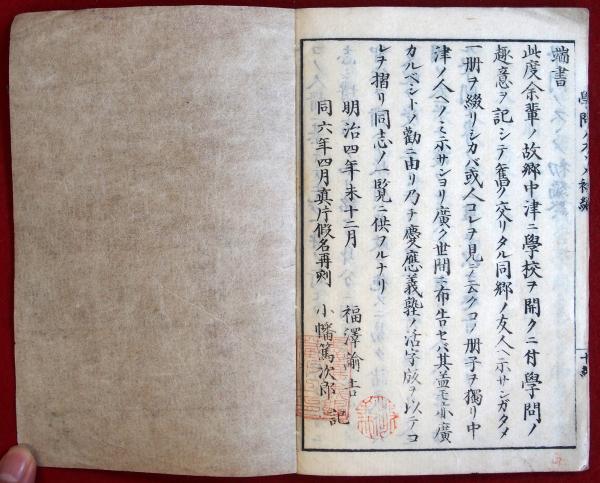 端書
此度余輩ノ故郷中津ニ學校ヲ開クニ付學問ノ
趣意ヲ記シテ舊ク交リタル同郷ノ友人ヘ示サンガタメ
一册ヲ綴リシカバ或人コレヲ見テ云クコノ册子ヲ獨リ中
津ノ人ヘノミ示サンヨリ廣ク世間ニ布告セバ其益モ亦廣
カルベシトノ勸ニ由リ乃チ慶應義塾ノ活字版ヲ以テコ
レヲ摺リ同志ノ一覧ニ供フルナリ
明治四年未十二月
福澤諭吉
記
同六年四月眞片假名再刻
小幡篤次郎